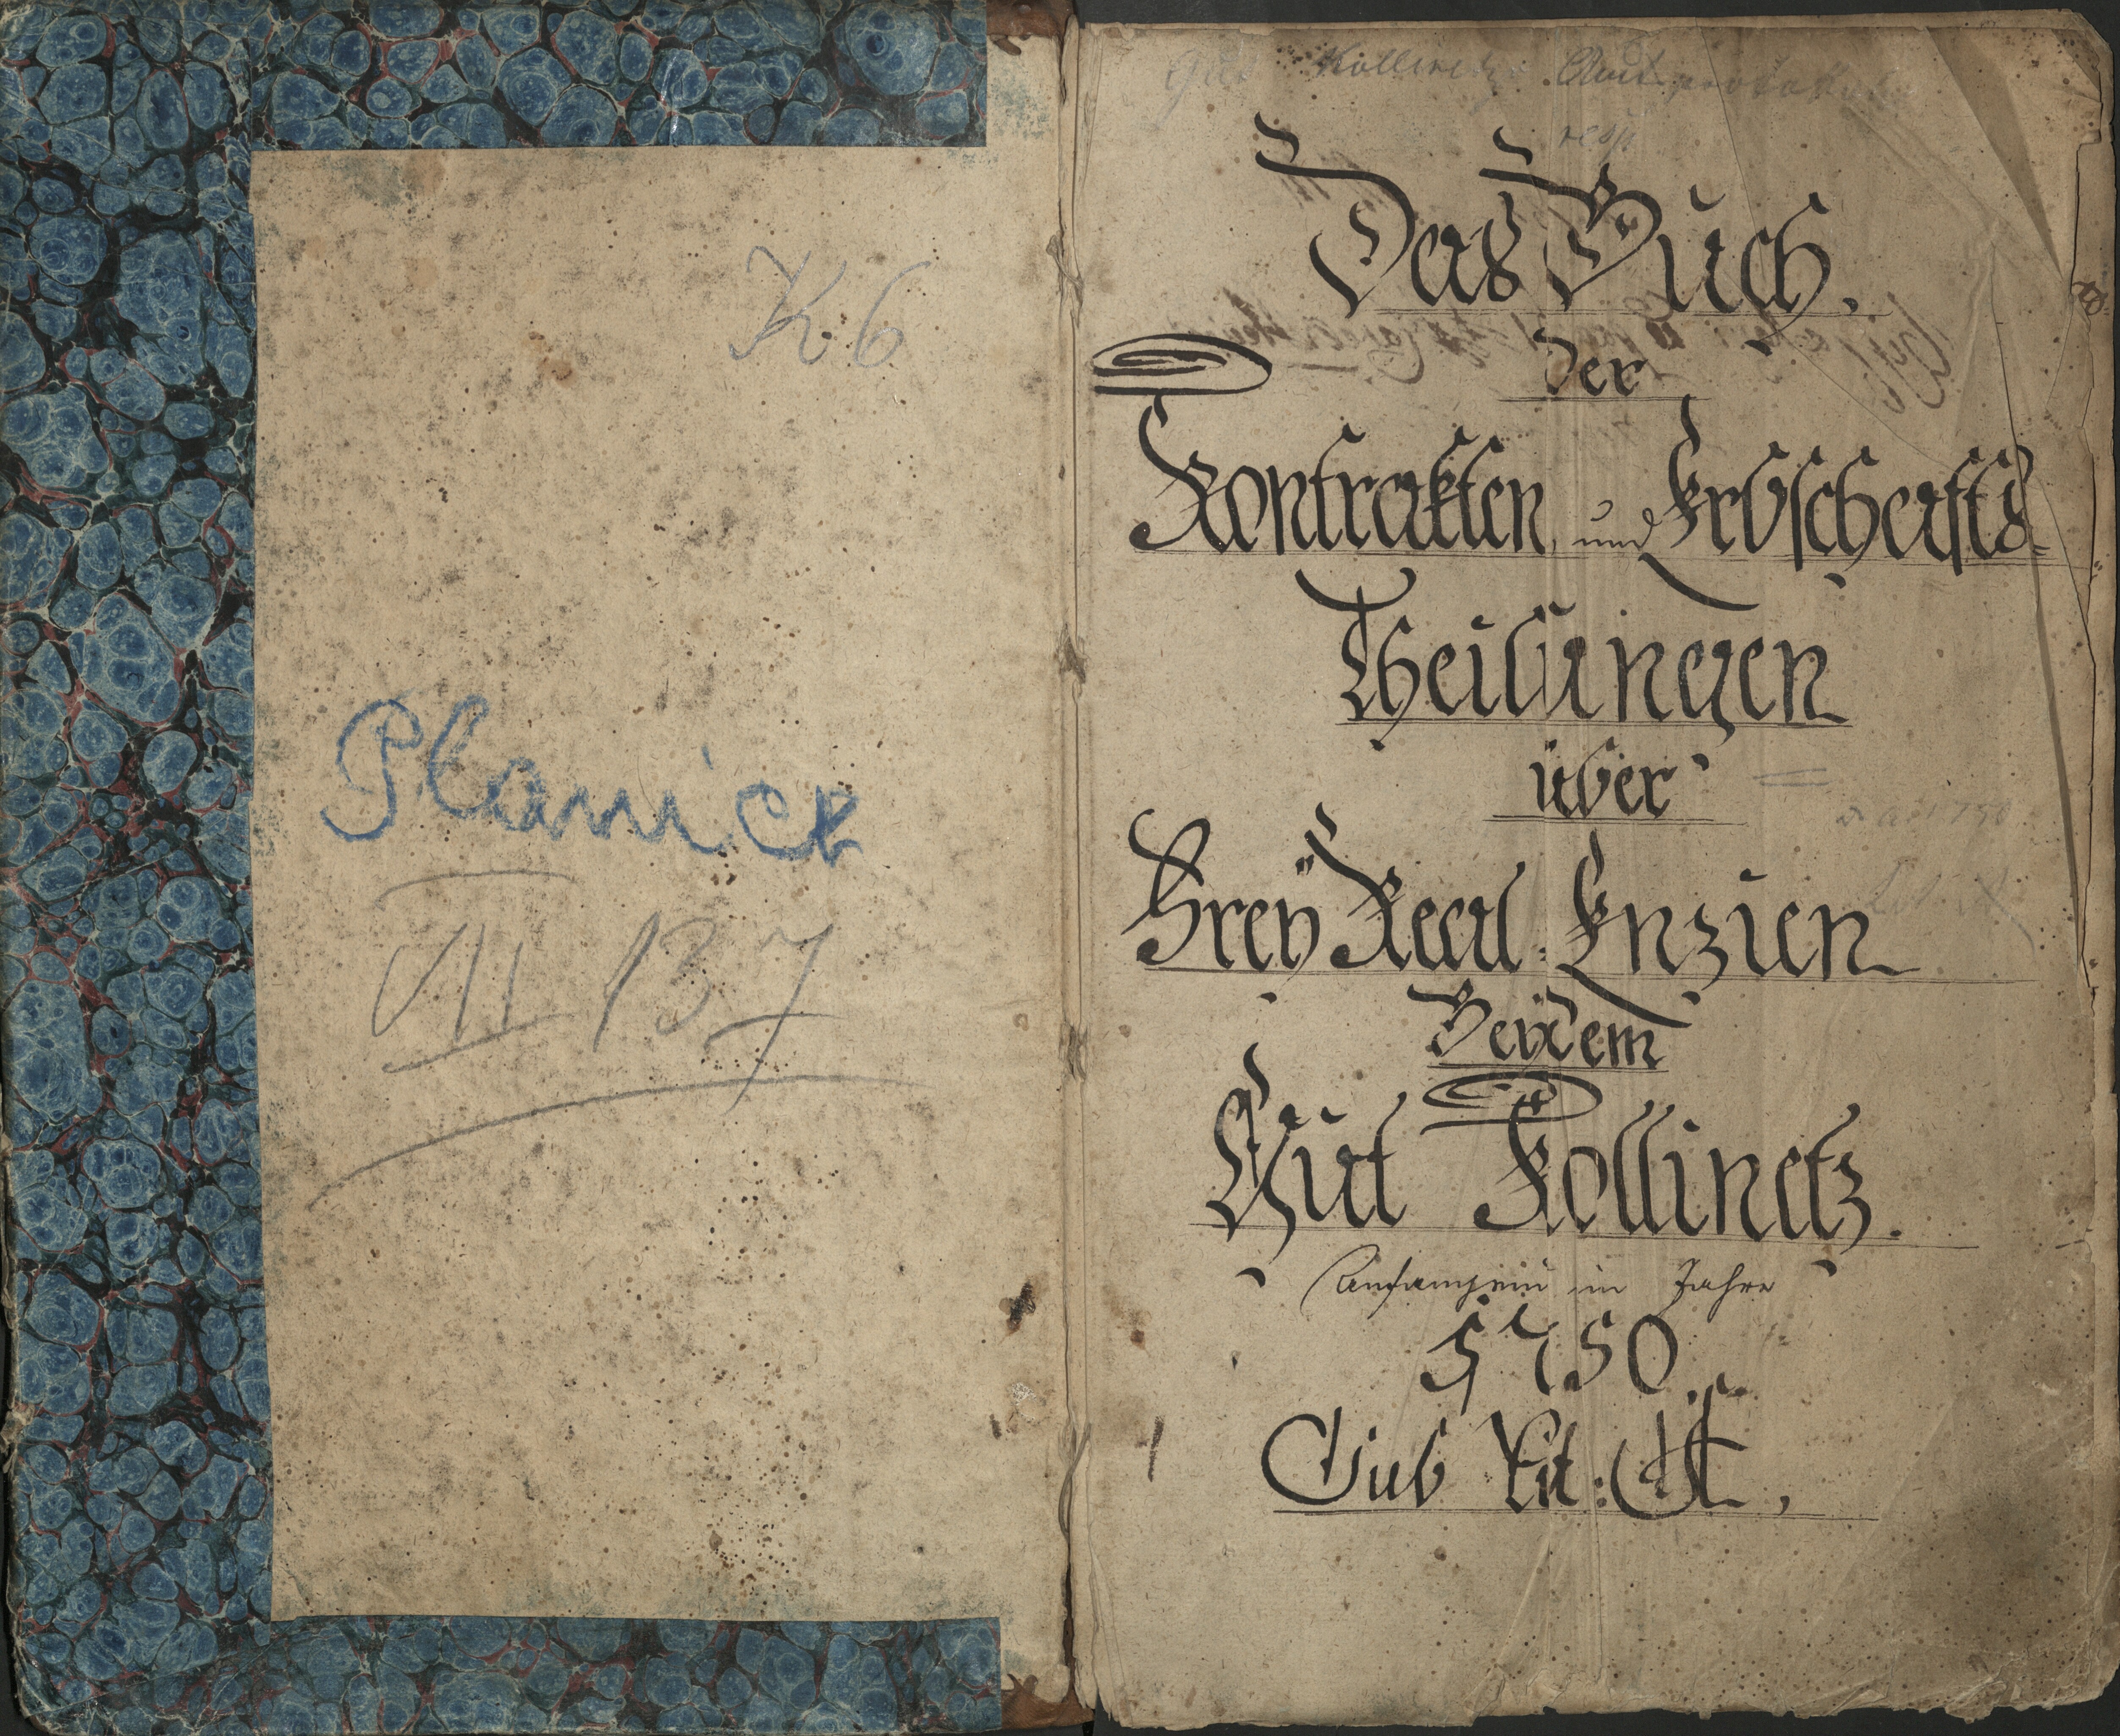 K. 6
Planick
VII 137
Gut Kollinetz Amt
resp
Das Buch.
der
Kontrakten und Erbschafts-
Theilungen
über
Freÿ Real: Enzien
Beÿ dem
Gut Kollinetz.
Anfangend im Jahre
1750.
Sub Lit: A,